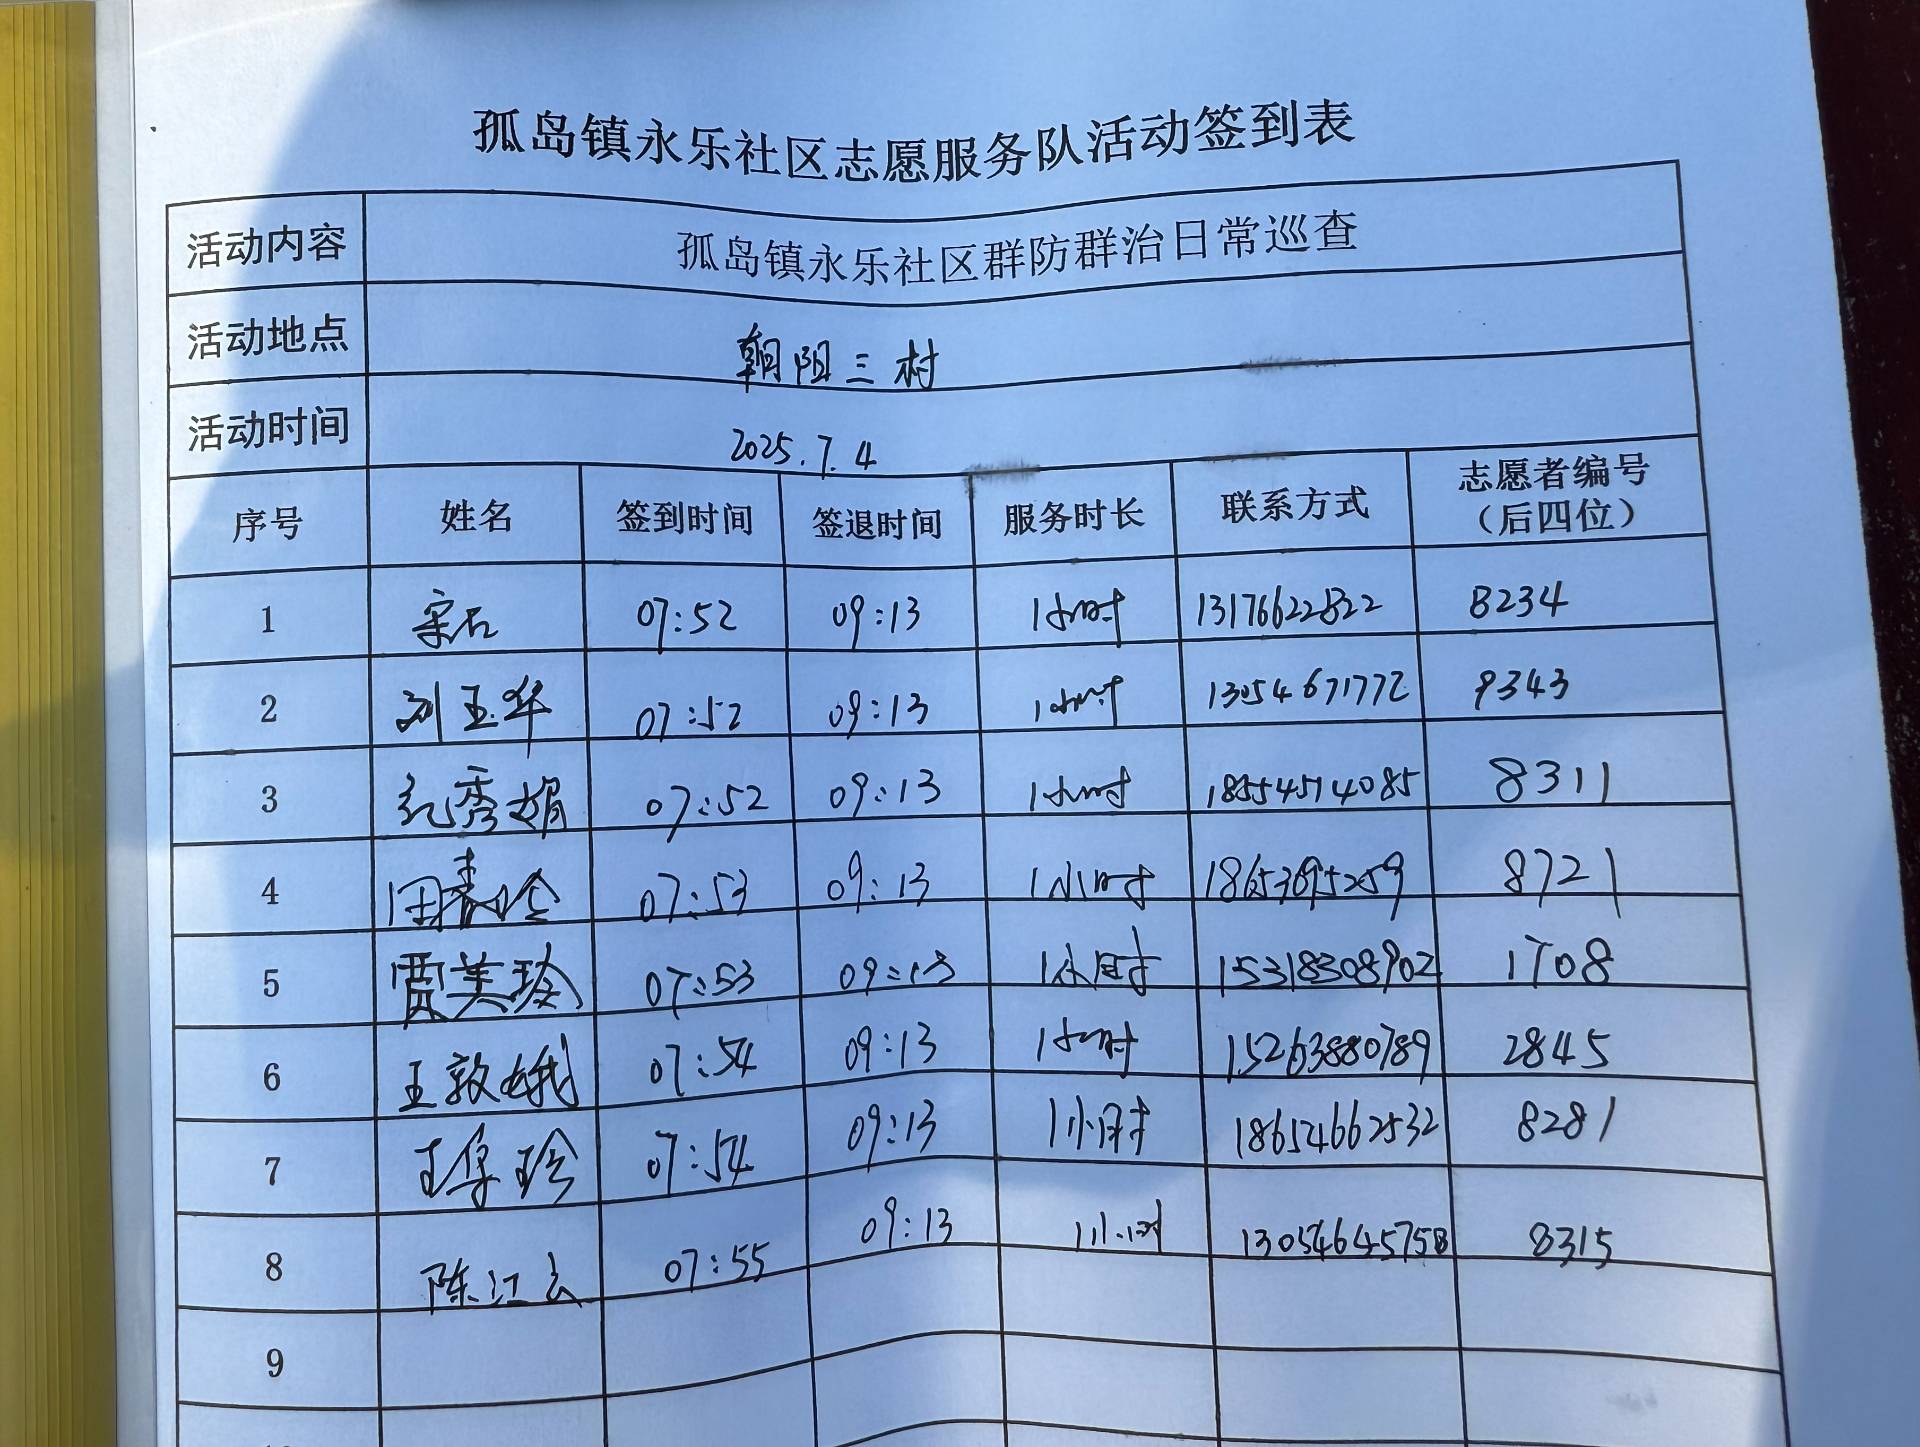 孤岛镇永乐社区志愿服务队活动签到表
活动内容 孤岛镇永乐社区群防群治日常巡查
活动地点 朝阳三村
活动时间 2025.7.4
序号 姓名 签到时间 签退时间 服务时长 联系方式 志愿者编号（后四位）
1 宋石 07:52 09:13 1小时 13176622822 8234
2 刘玉华 07:52 09:13 1小时 13054671772 9343
3 纪秀娟 07:52 09:13 1小时 18554514085 8311
4 田春玲 07:53 09:13 1小时 18653895259 8721
5 贾美玲 07:53 09:13 1小时 15318308902 1708
6 王敦娥 07:54 09:13 1小时 15263880789 2845
7 王 珍 07:54 09:13 1小时 18654662532 8281
8 陈江云 07:55 09:13 1小时 8315
9